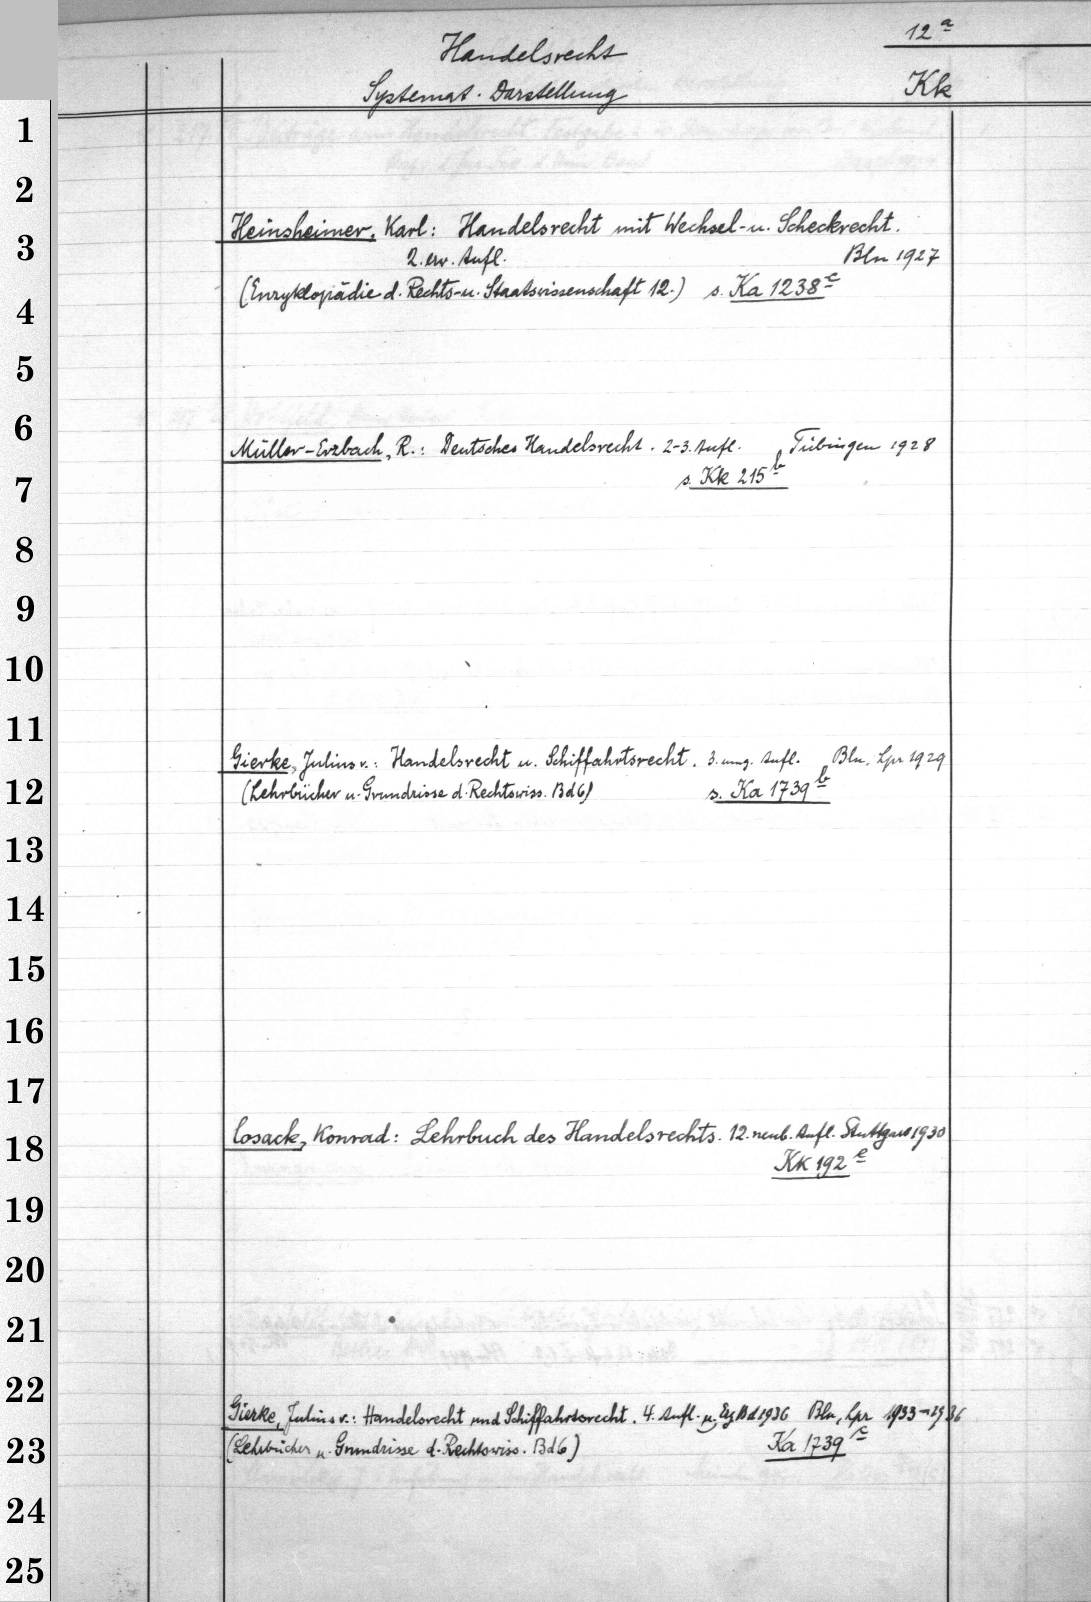 12 a
Handelsrecht
Systemat. Darstellung
Kk
1
2
Heinsheimer, Karl: Handelsrecht mit Wechsel- u. Scheckrecht.
3
2. erw. Aufl. Bln 1927
(Enzyklopädie d. Rechts- u. Staatswissenschaft 12.) s. Ka 1238 c
4
5
6
Müller-Erzbach, R.: Deutsches Handelsrecht. 2-3. Aufl. Tübingen 1928
s. Kk 215 b
7
8
9
10
11
Gierke, Julius v.: Handelsrecht u. Schiffahrtsrecht. 3. umg. Aufl. Bln, Lpz 1929
12
(Lehrbücher u. Grundrisse d. Rechtswiss. Bd 6) s. Ka 1739 b
13
14
15
16
17
Cosack, Konrad: Lehrbuch des Handelsrechts. 12. neub. Aufl. Stuttgart 1930
18
Kk 192 e
19
20
21
22
Gierke, Julius v.: Handelsrecht und Schiffahrtsrecht. 4. Aufl. u. Eg Bd 1936 Bln, Lpz 1933-1936
23
(Lehrbücher u. Grundrisse d. Rechtswiss. Bd 6) Ka 1739 c
24
25